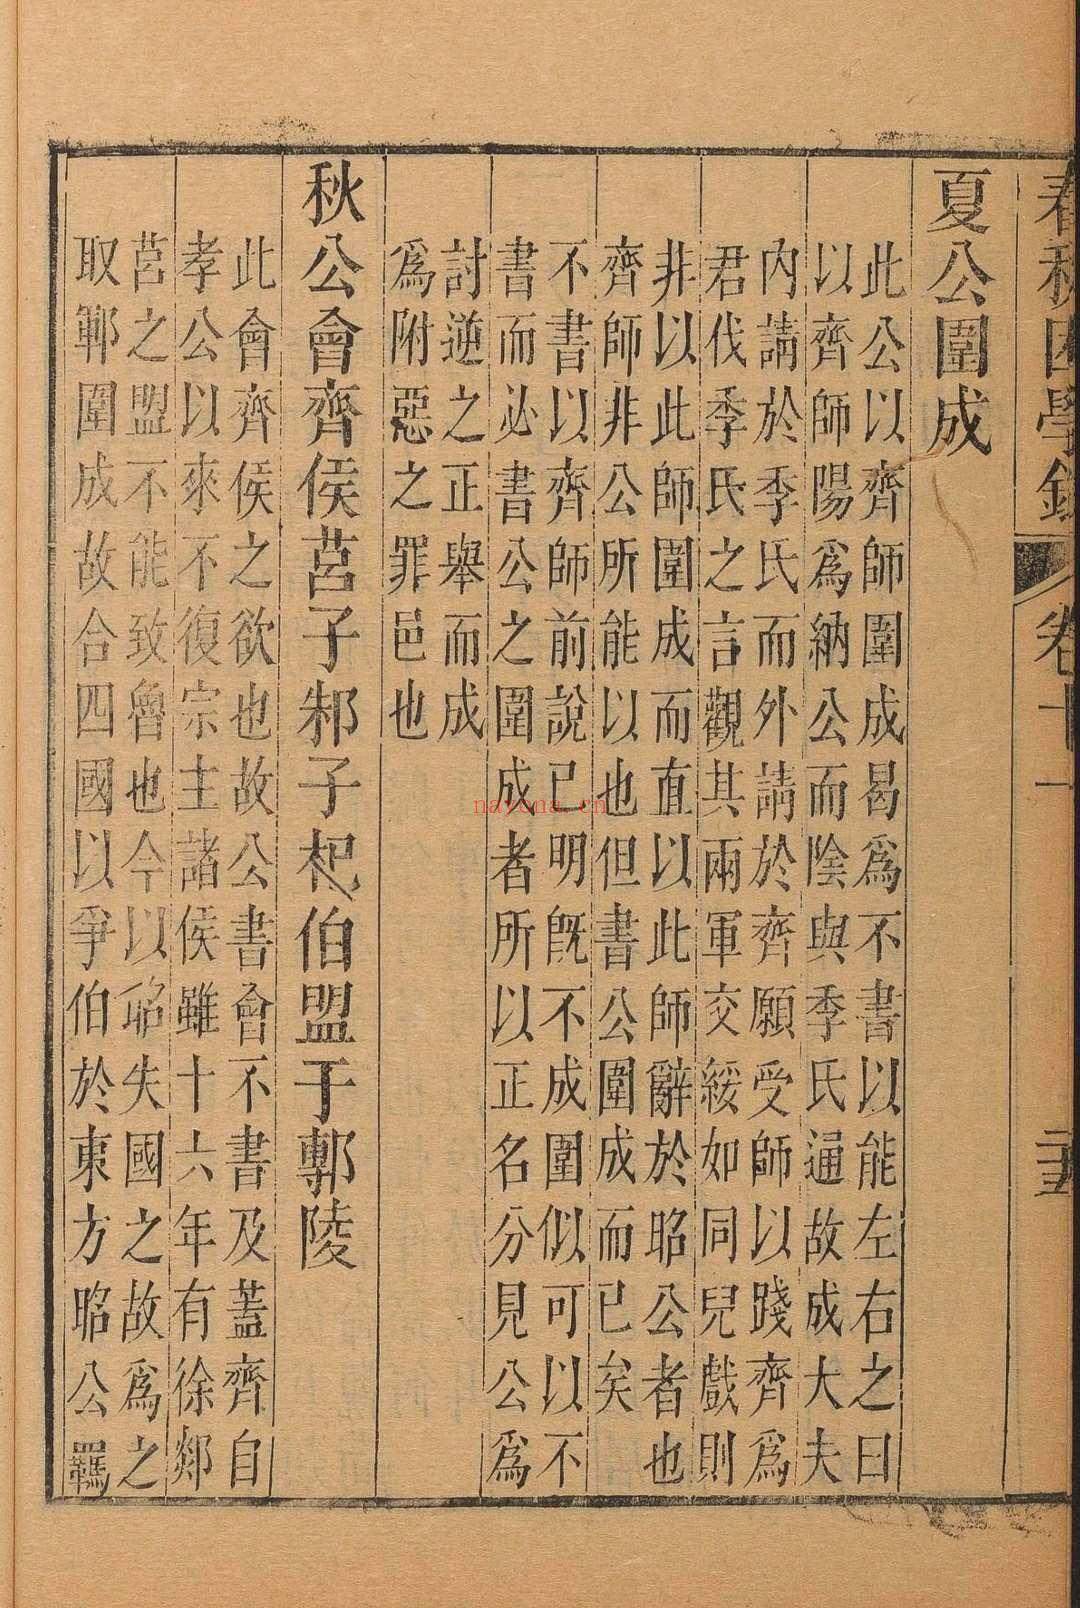 春秋困學錄
卷十一
二十五
夏公圍成
此公以齊師圍成曷爲不書以能左右之曰
以齊師陽爲納公而陰與季氏通故成大夫
內請於季氏而外請於齊願受師以踐齊爲
君伐季氏之言觀其兩軍交綏如同兒戲則
非以此師圍成而直以此師辭於昭公者也
齊師非公所能以也但書公圍成而已矣
不書以齊師前說已明旣不成圍似可以不
書而必書公之圍成者所以正名分見公爲
討逆之正舉而成
爲附惡之罪邑也
秋公會齊侯莒子邾子杞伯盟于鄟陵
此會齊侯之欲也故公書會不書及蓋齊自
孝公以來不復宗主諸侯雖十六年有徐郯
莒之盟不能致魯也今以昭失國之故爲之
取鄆圍成故合四國以爭伯於東方昭公羈
nayona.cn